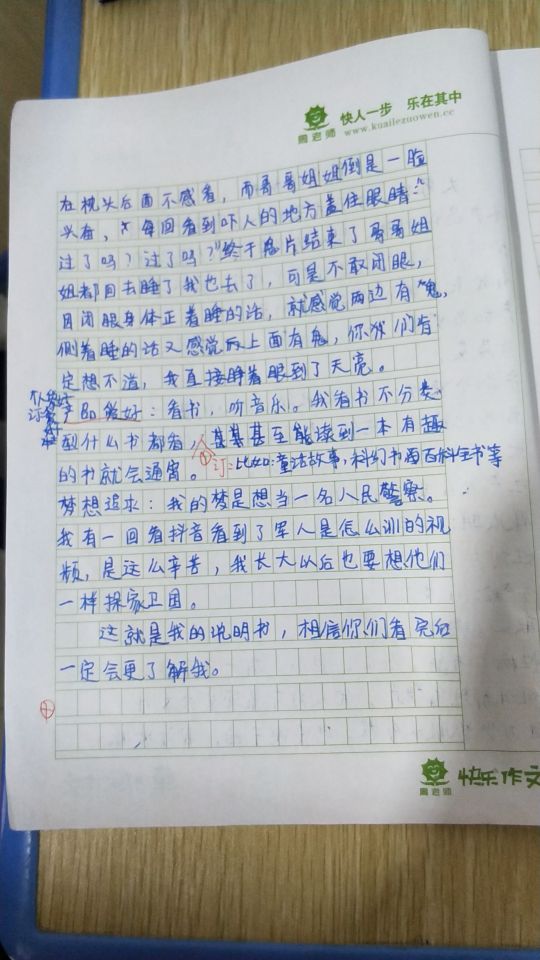 周老师
快人一步 乐在其中
www.kuailezuowen.cc
在枕头后面不感看，而哥哥姐姐倒是一脸
头奋，每回看到吓人的地方盖住眼睛：“
过了吗？过了吗？”终于恳片结束了哥哥姐
姐都回去睡了我也去了，可是不敢闭眼，
因闭眼身体正着睡的话，就感觉两边有鬼，
侧着睡的话又感觉后上面有鬼，你们肯
定想不道，我直接睁着眼到了天亮。
个人爱好
订
产品能好：看书，听音乐。我看书不分类
型什么书都看，甚至能读到一本有趣
的书就会通宵。
①
订：比如：童话故事，科幻书百科全书等
梦想追求：我的梦是想当一名人民警察。
我有一回看抖音看到了军人是怎么训的视
频，是这么辛苦，我长大以后也要想他们
一样探家卫国。
这就是我的说明书，相信你们看完后
一定会更了解我。
周老师
快乐作文